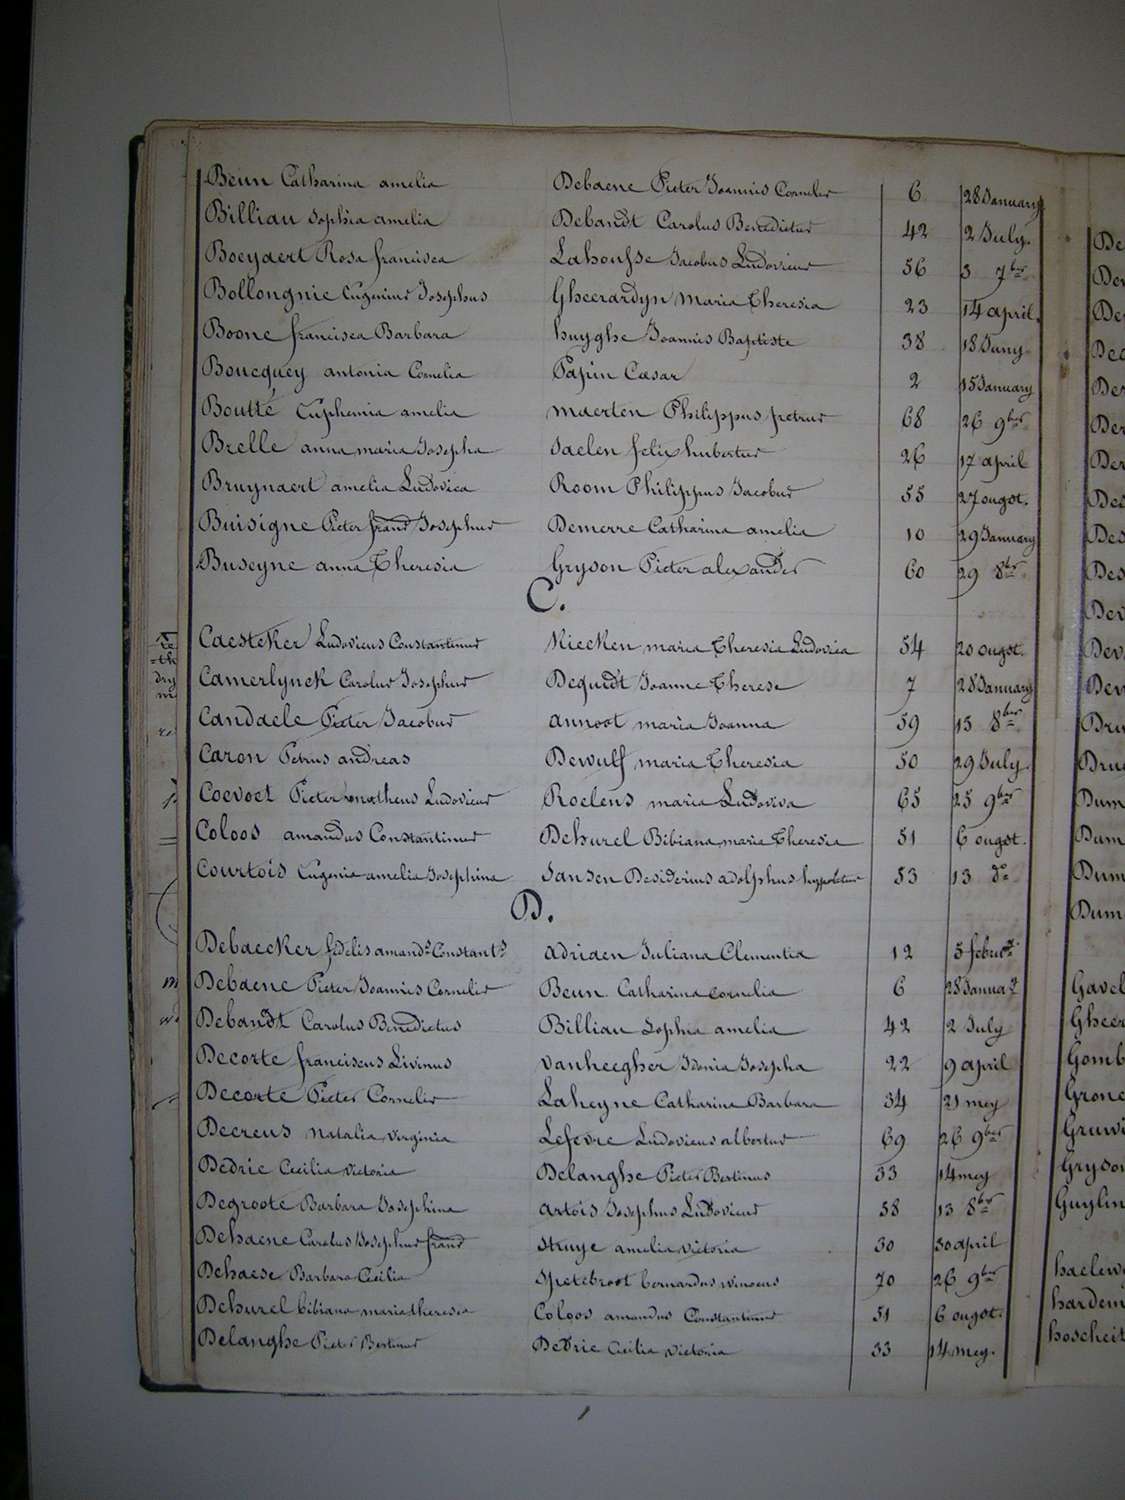 Beun Catharina amelia Debaene Pieter Joannis Cornelis 6 28 January
Billiau Sophia amelia Debandt Carolus Benedictus 42 2 July.
Boeydert Rosa francisca Lahousse Jacobus Ludovicus 56 3 7ber
Bollongnie Eugenius Josephus Gheerardyn Maria Theresia 23 14 april.
Boone francisca Barbara huyghe Joannis Baptiste 38 18 Juny
Boucquey antonia Cornelia Papin Cæsar 2 15 January
Boutté Euphemia amelia maerten Philippus petrus 68 26 9ber
Brelle anna maria Josepha Saelen felix hubertus 26 17 april
Bruynaert amelia Ludovica Room Philippus Jacobus 55 27 ougst.
Buisigne Pieter frans Josephus Demerre Catharina amelia 10 29 January
Buseyne anna Theresia Gryson Pieter alexander 60 29 8ber
C.
Caesteker Ludovicus Constantinus Kiecken maria Theresia Ludovica 54 20 ougst.
Camerlynck Carolus Josephus Dequidt Joanne Therese 7 28 January
Candaele Pieter Jacobus annoot maria Joanna 59 13 8ber
Caron Petrus andreas Dewulf maria Theresia 50 29 July.
Coevoet Pieter matheus Ludovicus Roelens maria Ludoviva 65 25 9ber
Coloos amandus Constantinus Dehurel Bibiana maria Theresia 51 6 ougst.
Courtois Eugenia amelia Josephina Jansen Desiderius adolphus hypolitus 53 13 do
D.
Debaecker fidelis amands Constants adriaen Juliana Clementia 12 3 februa
Debaene Pieter Joannis Cornelis Beun. Catharina Cornelia 6 28 Januay
Debandt Carolus Benedictus Billiau Sophia amelia 42 2 July
Decorte franciscus Livinus Vanheegher Idonia Josepha 22 9 april
Decorte Pieter Cornelis Laheyne Catharina Barbara 34 21 mey
Decreus Natalia Virginia Lefevre Ludovicus albertus 69 26 9ber
Dedrie Cecilia Victoria Delanghe Pieter Bertinus 33 14 mey
Degroote Barbara Josephina artois Josephus Ludovicus 58 13 8ber
Dehaene Carolus Josephus frans Struye amelia Victoria 30 30 april
Dehaese Barbara Cecilia Spetebroot bernardus winocus 70 26 9ber
Dehurel bibiana maria theresia Coloos amandus Constantinus 51 6 ougst.
Delanghe Pieter Bertinus Dedrie Cecilia Victoria 33 14 mey.